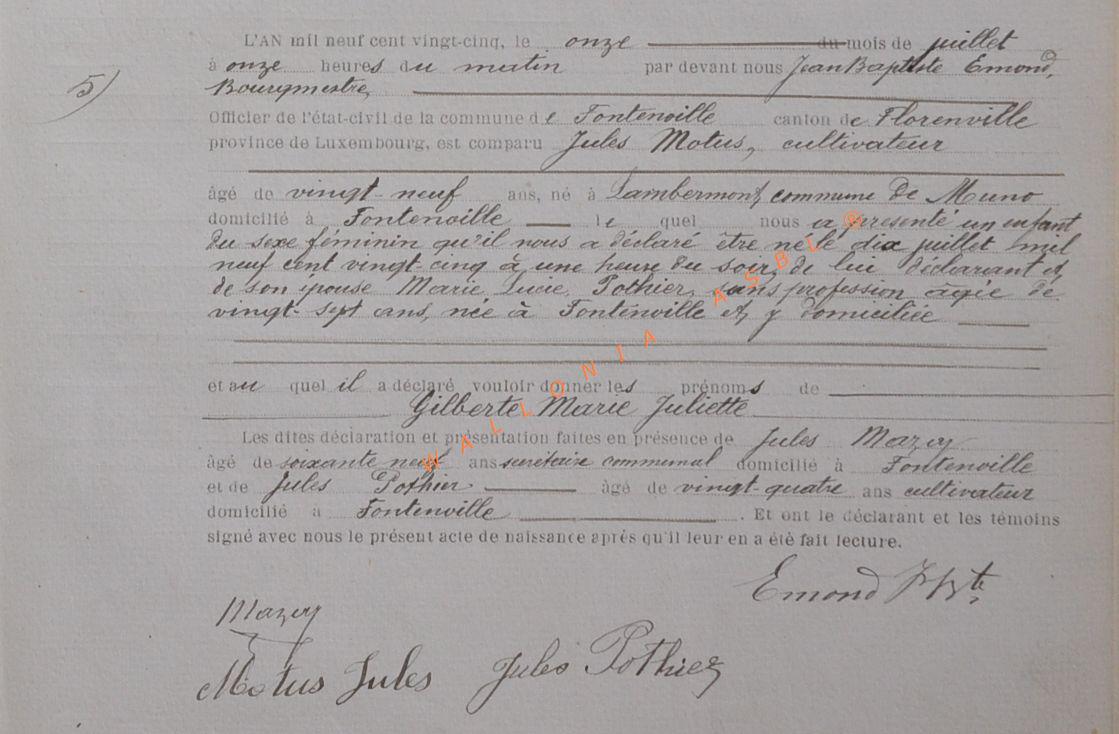 L'AN mil neuf cent vingt-cinq, le onze du mois de juillet
à onze heures du matin par devant nous Jean Baptiste Emond,
5) Bourgmestre,
Officier de l'état-civil de la commune de Fontenoille canton de Florenville
province de Luxembourg, est comparu Jules Motus, cultivateur
âgé de vingt-neuf ans, né à Lambermont, commune de Muno
domicilié à Fontenoille lequel nous a présenté un enfant
du sexe féminin qu'il nous a déclaré être né le dix juillet mil
neuf cent vingt-cinq à une heure du soir, de lui déclarant et
de son épouse Marie Lucie Pothier, sans profession âgée de
vingt-sept ans, née à Fontenville et y domiciliée
et au quel il a déclaré vouloir donner les prénoms de
Gilberte Marie Juliette
Les dites déclaration et présentation faites en présence de Jules Mazay
âgé de soixante neuf ans secrétaire communal domicilié à Fontenoille
et de Jules Pothier âgé de vingt-quatre ans cultivateur
domicilié à Fontenville. Et ont le déclarant et les témoins
signé avec nous le présent acte de naissance après qu'il leur en a été fait lecture.
Emond JBte
Mazay
Motus Jules Jules Pothier
WALLONIA ASBL ®